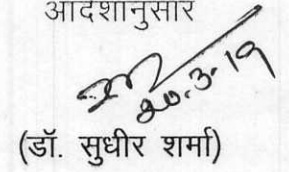 आदेशानुसार
20.3.19
(डॉ. सुधीर शर्मा)